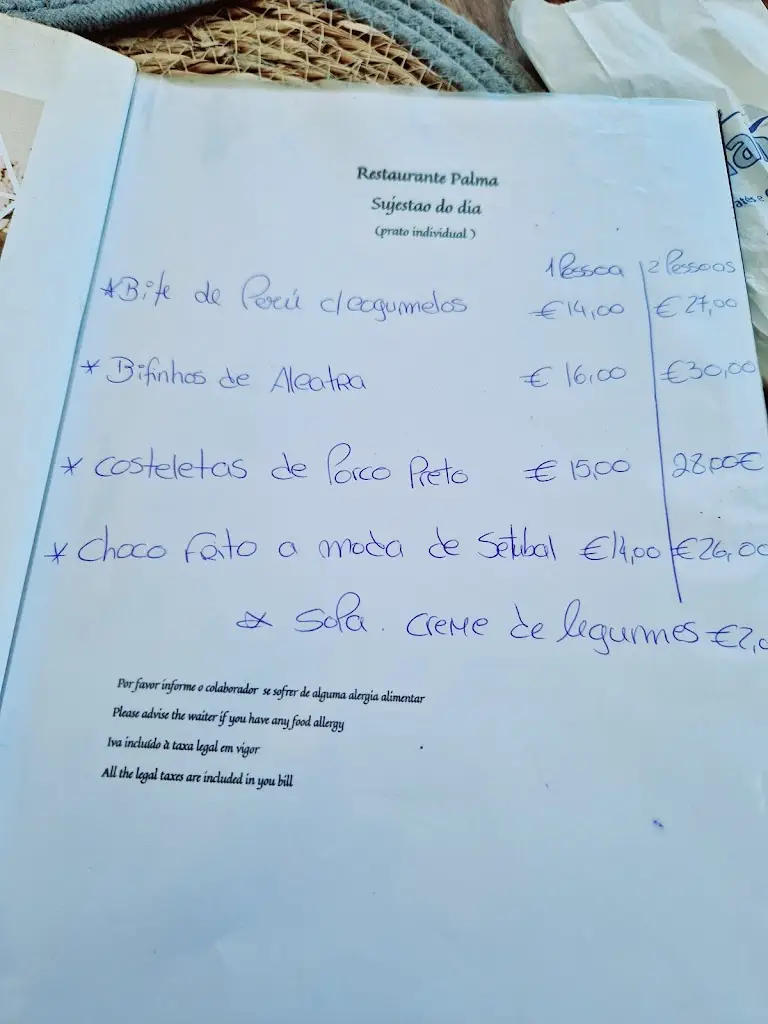 Restaurante Palma
Sujestao do dia
(prato individual)
1 Pessoa | 2 Pessoas
* Bife de Perú c/cogumelos € 14,00 € 27,00
* Bifinhos de Alcatra € 16,00 € 30,00
* costeletas de Porco Preto € 15,00 28,00€
* choco Frito a moda de Setubal € 14,00 € 26,00
* Sopa. creme de legumes €2,0
Por favor informe o colaborador se sofrer de alguma alergia alimentar
Please advise the waiter if you have any food allergy
Iva incluído à taxa legal em vigor
All the legal taxes are included in you bill